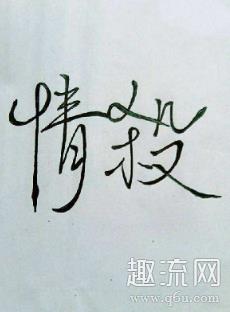 情殺
趣流网
www.q6u.com